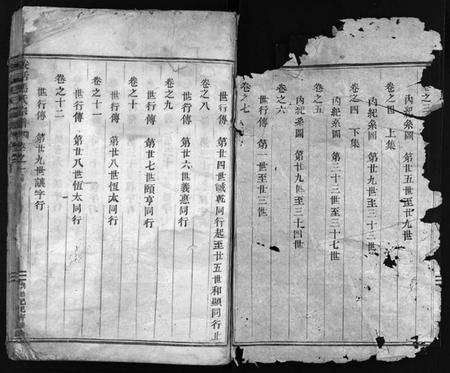 卷之三
內紀系圖 第廿五世至廿九世
卷之四 上集
內紀系圖 第廿九世至三十三世
卷之四 下集
內紀系圖 第三十三世至三十七世
卷之五
內紀系圖 第廿九世至三十四世
卷之六
世行傳 第一世至廿三世
卷之七
世行傳 第廿四世誠乾同行起至廿五世和顯同行止
卷之八
世行傳 第廿六世義惠同行
卷之九
世行傳 第廿七世頤亨同行
卷之十
世行傳 第廿八世恆太同行
卷之十一
世行傳 第廿八世恆太同行
卷之十二
世行傳 第廿九世謙字行